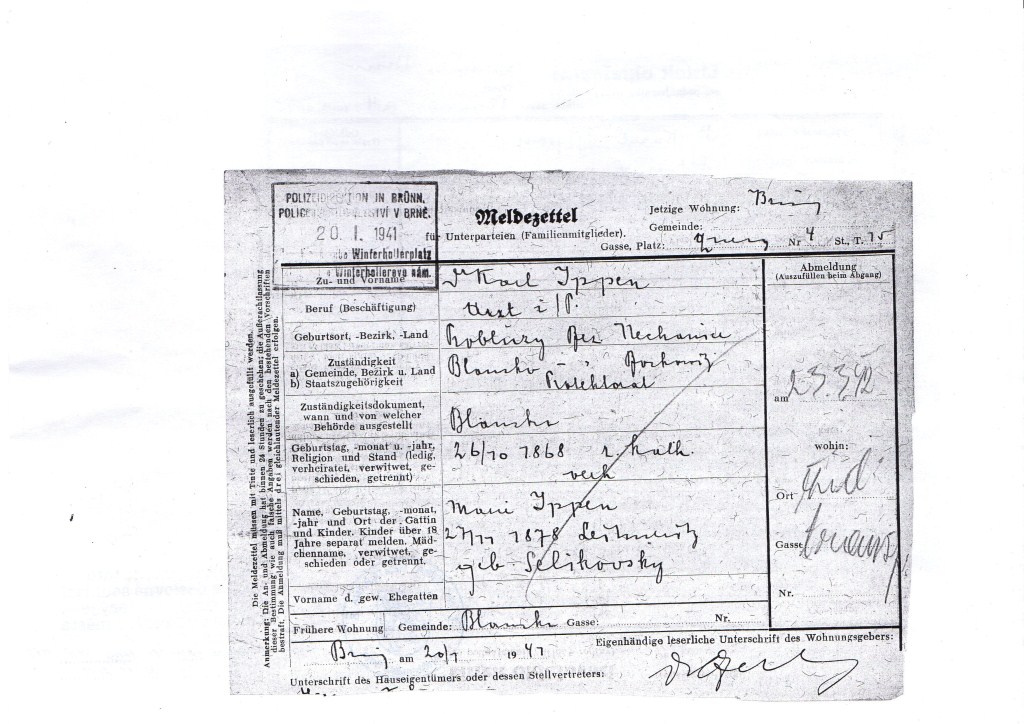 POLIZEIDIREKTION IN BRÜNN.
POLICEJNÍ ŘEDITELSTVÍ V BRNĚ.
20. I. 1941
Winterhollerplatz
Winterhollerovo nám.
Meldezettel
für Unterparteien (Familienmitglieder).
Jetzige Wohnung: Brünn
Gemeinde:
Gasse, Platz: Nr 4 St., T. 15
Zu- und Vorname
Dr Karl Ippen
Beruf (Beschäftigung)
Arzt i/P.
Geburtsort, -Bezirk, -Land
bei Nechanice
Zuständigkeit
a) Gemeinde, Bezirk u. Land
b) Staatszugehörigkeit
Blansko
Protektorat
Zuständigkeitsdokument,
wann und von welcher
Behörde ausgestellt
Blansko
Geburtstag, -monat u. -jahr,
Religion und Stand (ledig,
verheiratet, verwitwet, ge-
schieden, getrennt)
26/10 1868 r. kath.
verh
Name, Geburtstag, -monat,
-jahr und Ort der Gattin
und Kinder. Kinder über 18
Jahre separat melden. Mäd-
chenname, verwitwet, ge-
schieden oder getrennt.
Ippen
1878 Leitmeritz
geb. Selikovsky
Vorname d. gew. Ehegatten
Frühere Wohnung Gemeinde: Blansko Gasse: Nr.
Brünn am 20/1 1941
Eigenhändige leserliche Unterschrift des Wohnungsgebers:
Unterschrift des Hauseigentümers oder dessen Stellvertreters:
Abmeldung
(Auszufüllen beim Abgang)
am 23.3.42
wohin:
Ort
Gasse
Nr.
Die Meldezettel müssen mit Tinte und leserlich ausgefüllt werden.
Anmerkung: Die An- und Abmeldung hat binnen 24 Stunden zu geschehen; die Außerachtlassung
dieser Bestimmung wie auch falsche Angaben werden nach den bestehenden Vorschriften
bestraft. Die Anmeldung muß mittels drei gleichlautender Meldezettel erfolgen.